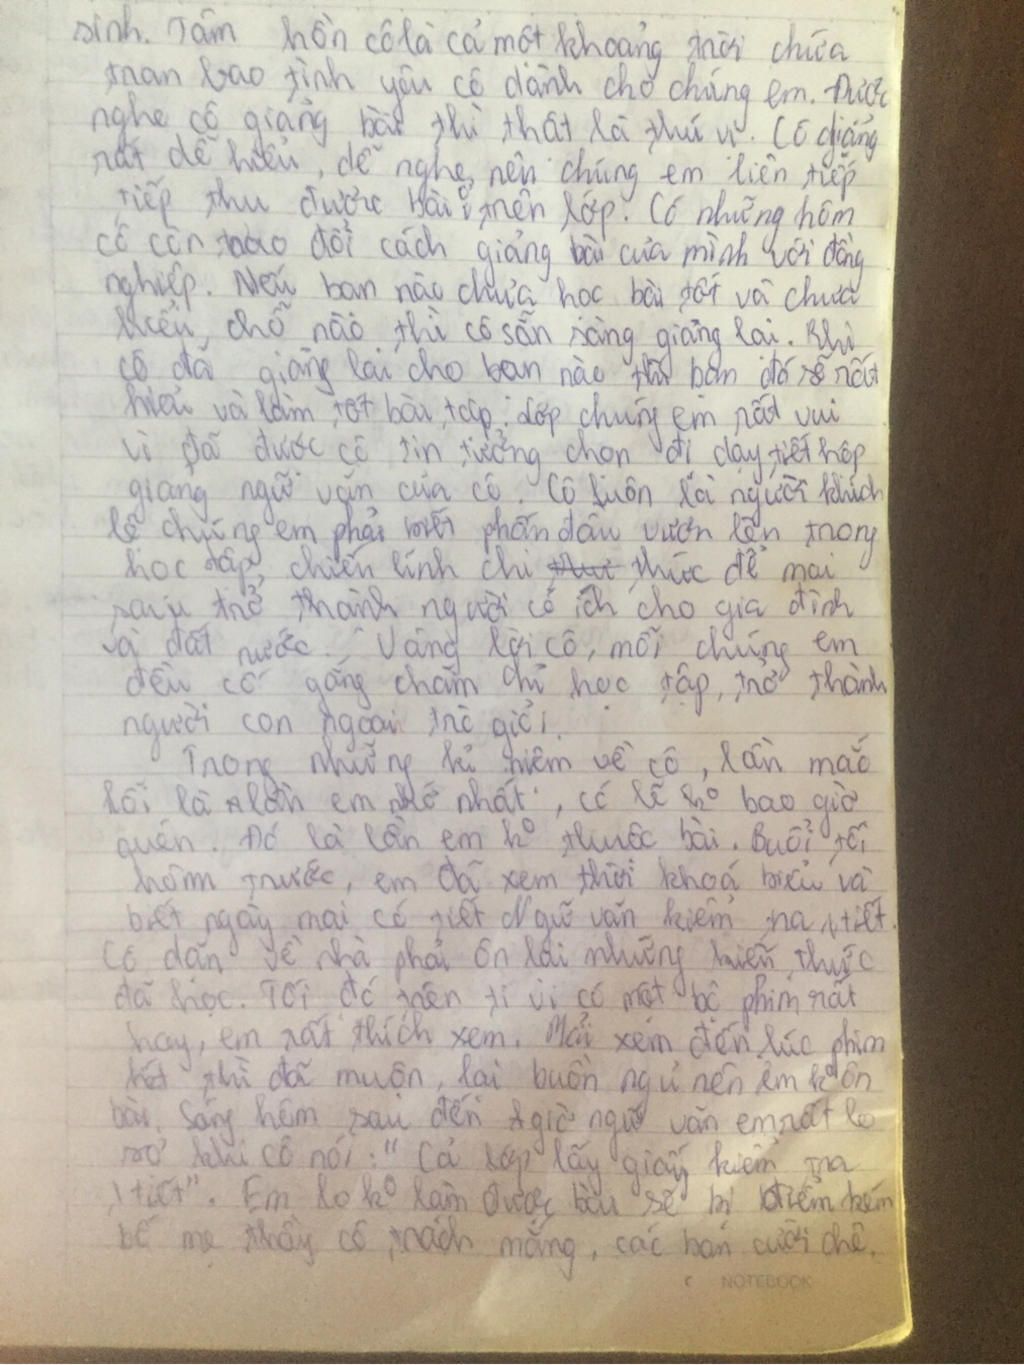 sinh. Tâm hồn cô là cả một khoảng trời chứa
tran bao tình yêu cô dành cho chúng em. Được
nghe cô giảng bài thì thật là thú vị. Cô giảng
rất dễ hiểu, dễ nghe, nên chúng em liên tiếp
tiếp thu được bài trên lớp. Có những hôm
cô còn trao đổi cách giảng bài của mình với đồng
nghiệp. Nếu bạn nào chưa học bài tốt và chưa
hiểu chỗ nào thì cô sẵn sàng giảng lại. Khi
cô đã giảng lại cho bạn nào thì bạn đó sẽ rất
hiểu và làm tốt bài tập. Lớp chúng em rất vui
vì đã được cô tin tưởng chọn đi dạy tiết hộp
giang ngữ văn của cô. Cô luôn là người khích
lệ chúng em phải biết phấn đấu vươn lên trong
học tập, chiến lính chi thức để mai
sau trở thành người có ích cho gia đình
và đất nước. Vâng lời cô, mỗi chúng em
đều cố gắng chăm chỉ học tập, trở thành
người con ngoan trò giỏi.
Trong những kỉ niệm về cô, lần mắc
lỗi là lần em nhớ nhất, có lẽ ko bao giờ
quên. Đó là lần em ko thuộc bài. Buổi tối
hôm trước, em đã xem thời khoá biểu và
biết ngày mai có tiết Ngữ văn kiểm tra 1 tiết.
Cô dặn về nhà phải ôn lại những kiến thức
đã học. Tối đó trên ti vi có một bộ phim rất
hay, em rất thích xem. Mải xem đến lúc phim
hết thì đã muộn, lại buồn ngủ nên em ko ôn
bài. Sáng hôm sau đến giờ ngữ văn em rất lo
sợ khi cô nói: "Cả lớp lấy giấy kiểm tra
1 tiết". Em lo ko làm được bài sẽ bị điểm kém
bố mẹ thầy cô trách mắng, các bạn cười chê.
NOTEBOOK